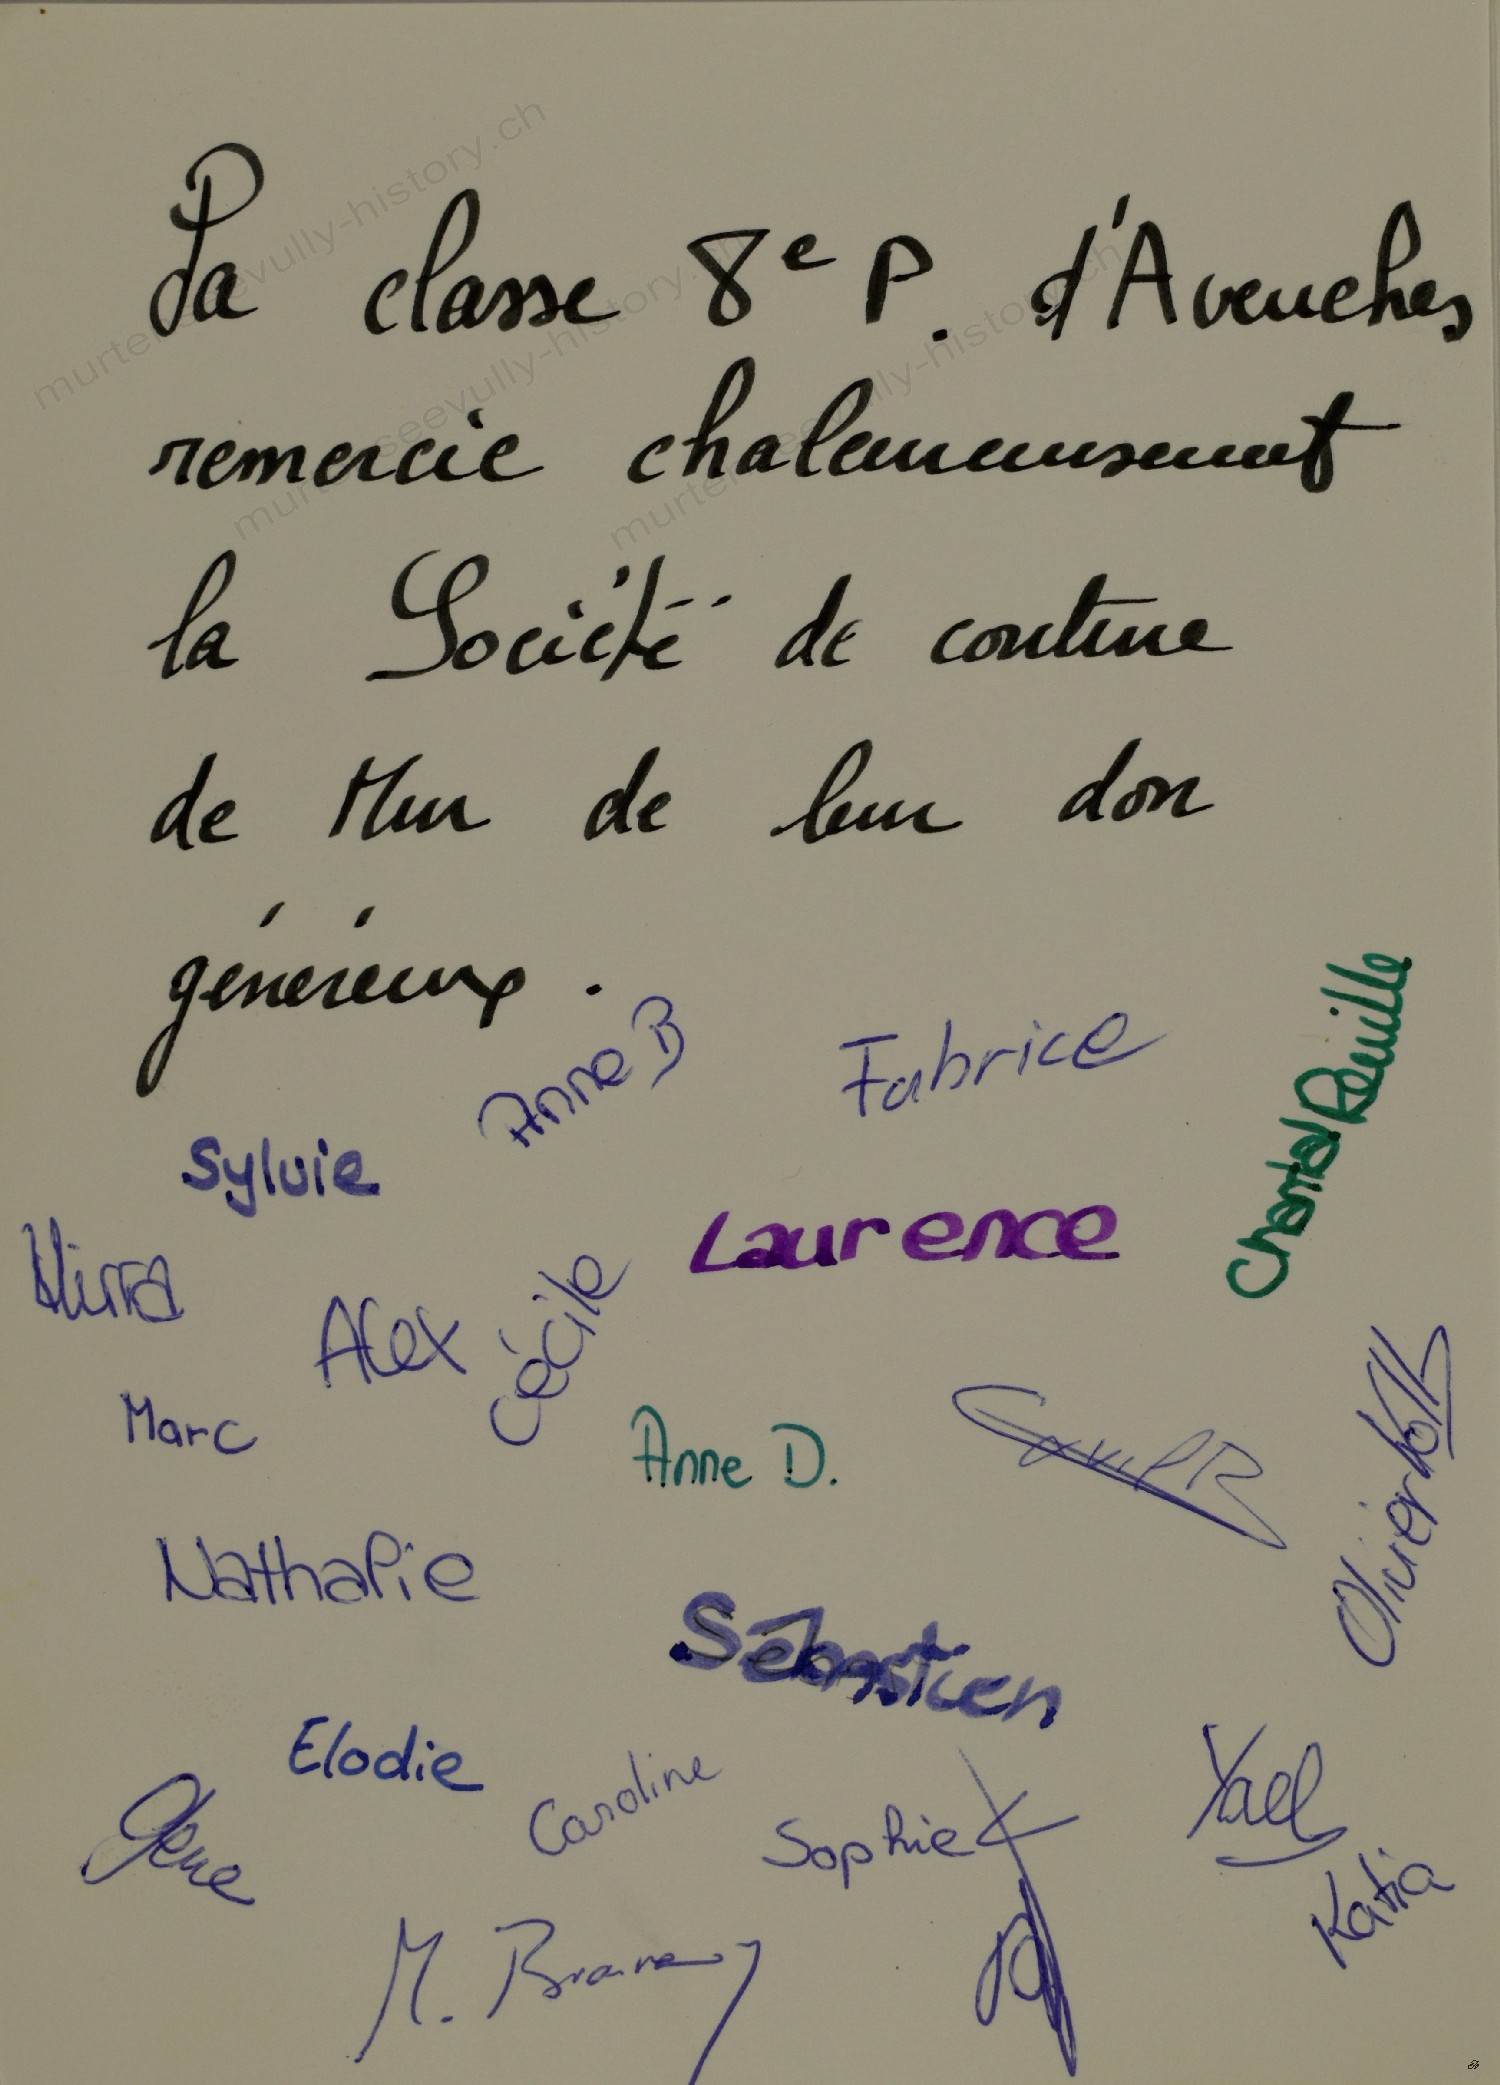 La classe 8e P. d'Avenches
remercie chaleureusement
la Société de couture
de Mur de leur don
généreux.
Anne B
Fabrice
Chantal Reuille
Sylvie
Laurence
Alex
Cécile
Marc
Anne D.
Olivier
Nathalie
Sébastien
Elodie
Caroline
Sophie K
Yaël
Katia
M.
murtenseevully-history.ch
murtenseevully-history.ch
murtenseevully-history.ch